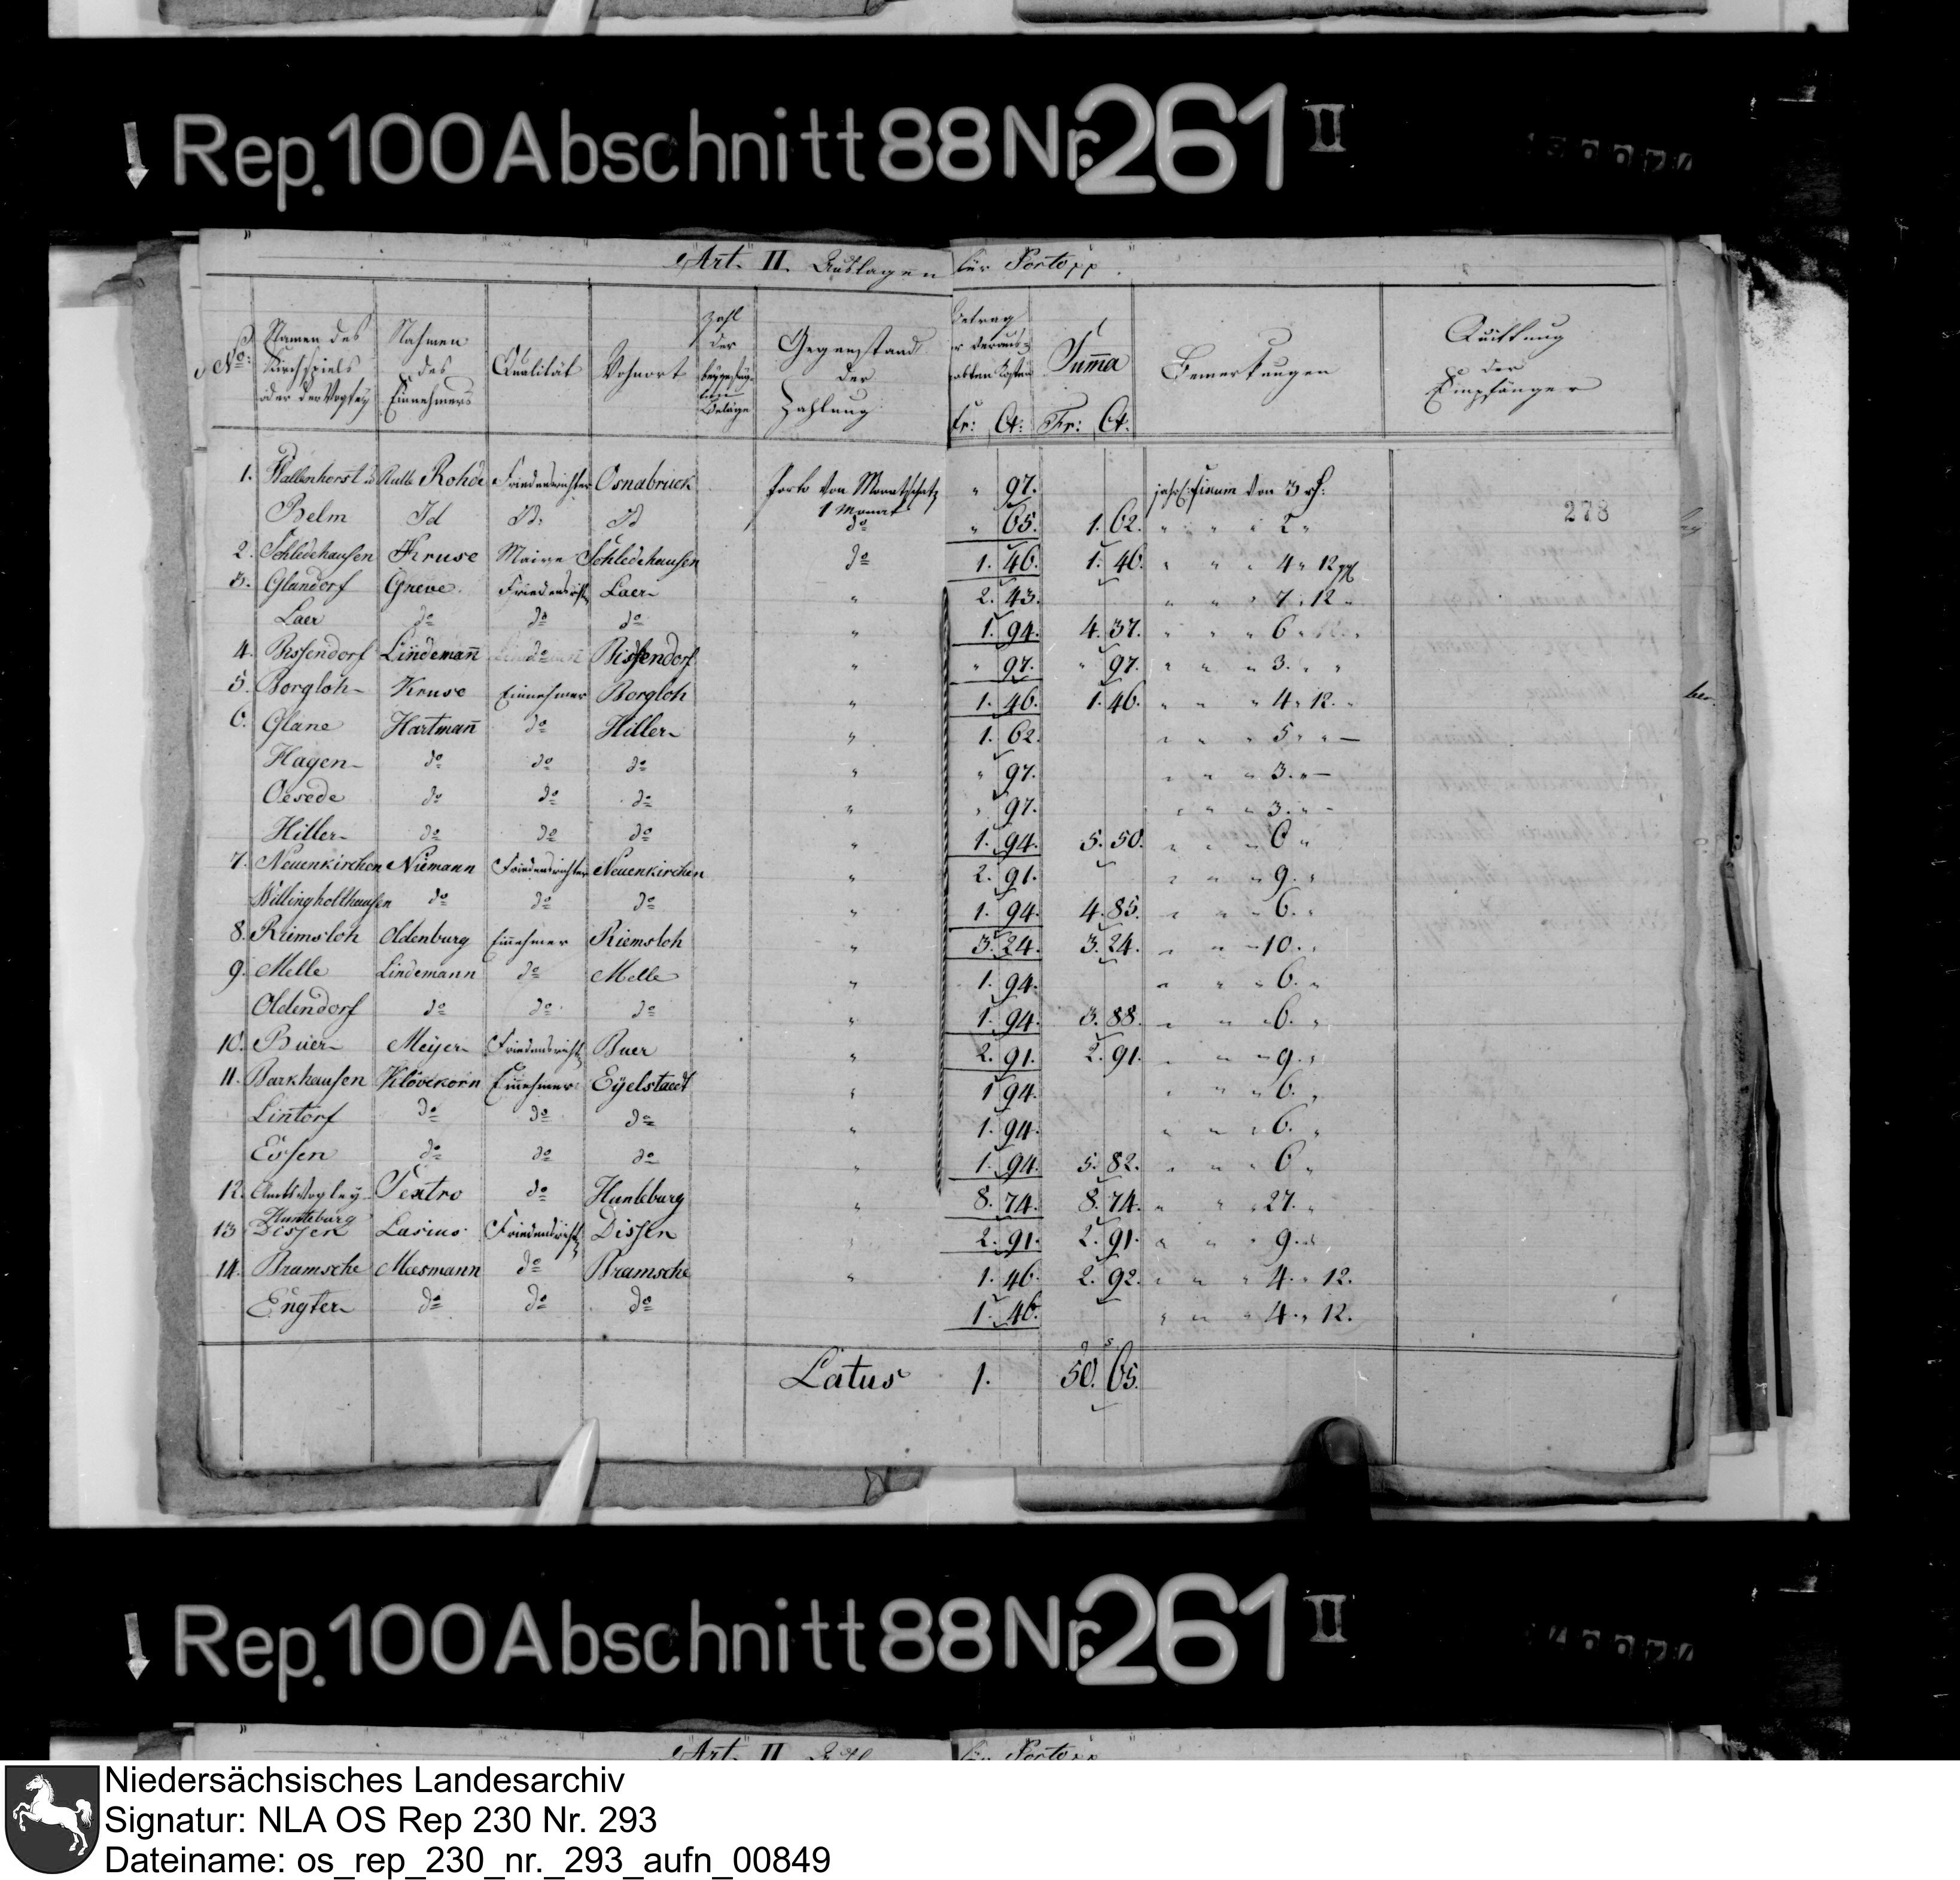 Rep. 100 Abschnitt 88 Nr. 261 II
Art. II. Auslagen für Porto pp.
No: Namen des Kirchspiels oder der Vogtey Nahmen des Einnehmers Qualität Wohnort Zahl der beygefügten Beläge Gegenstand der Zahlung Betrag der verausgabten Kosten Fr: Ct: Summa Fr: Ct: Bemerkungen Quittung der Empfänger
278
1. Wallenhorst u Rulle Rohde Friedensrichter Osnabrück Porto von Monatschatz 1 Monat " 97. jährl: fixum von 3 rt:
Belm Id Id Id do " 65. 1. 62. " " " 2 "
2. Schledehausen Kruse Maire Schledehausen do 1. 46. 1. 46. " " " 4 " 12 ggl
3. Glandorf Greve Friedensricht Laer " 2. 43. " " " 7 " 12 "
Laer do do do " 1. 94. 4. 37. " " " 6 "
4. Bissendorf Lindemañ do Bissendorf " " 97. " 97. " " " 3. " "
5. Borgloh Kruse Einnehmer Borgloh " 1. 46. 1. 46. " " " 4 " 12. "
6. Glane Hartmañ do Hilter " 1. 62. " " " 5 " " —
Hagen do do do " " 97. " " " 3. " —
Oesede do do do " " 97. " " " 3. " -
Hilter do do do " 1. 94. 5. 50. " " " 6 "
7. Neuenkirchen Niemann Friedensrichter Neuenkirchen " 2. 91. " " " 9. "
Wellingholthausen do do do " 1. 94. 4. 85. " " " 6. "
8. Riemsloh Oldenburg Einnehmer Riemsloh " 3. 24. 3. 24. " " " 10. "
9. Melle Lindemann do Melle " 1. 94. " " " 6. "
Oldendorf do do do " 1. 94. 3. 88. " " " 6. "
10. Buer Meijer Friedensricht Buer " 2. 91. 2. 91. " " " 9. "
11. Barkhausen Klövekorn Einnehmer Eijelstaedt " 1 94. " " " 6. "
Lintorf do do do " 1. 94. " " " 6. "
Essen do do do " 1. 94. 5. 82. " " " 6 "
12. Amtsvogtey Hunteburg Textro do Hunteburg " 8. 74. 8. 74. " " " 27. "
13 Dissen Lasius Friedensricht Dissen " 2. 91. 2. 91. " " " 9. "
14. Bramsche Maesmann do Bramsche " 1. 46. 2. 92. " " " 4. " 12.
Engter do do do 1. 46. " " " 4. " 12.
Latus 1. 50. 65.
Rep. 100 Abschnitt 88 Nr. 261 II
Niedersächsisches Landesarchiv
Signatur: NLA OS Rep 230 Nr. 293
Dateiname: os_rep_230_nr._293_aufn_00849